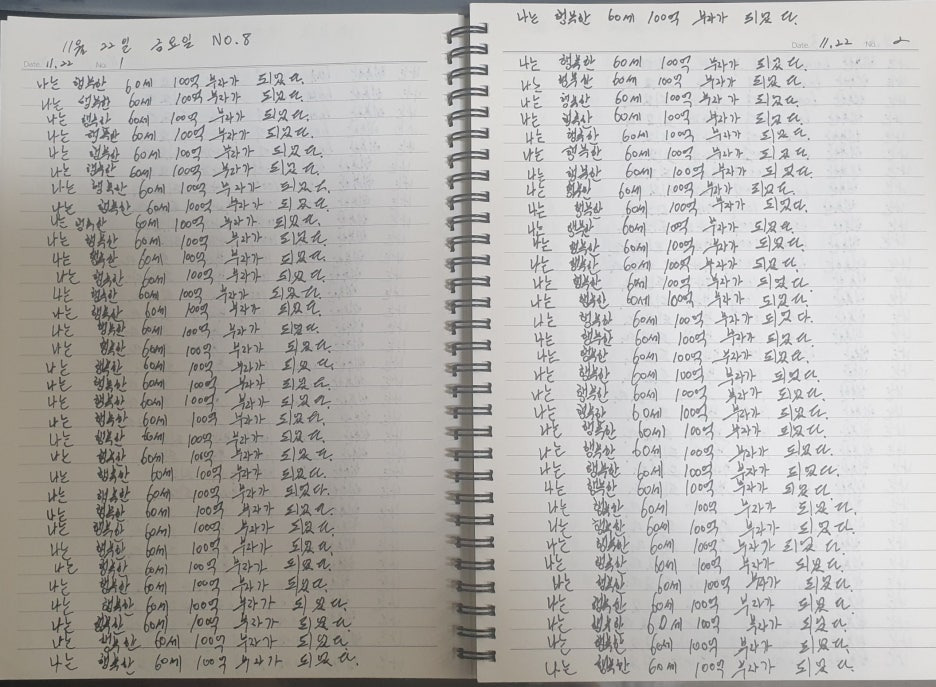 11월 22일 금요일 NO.8
Date. 11.22 No. 1
나는 행복한 60세 100억 부자가 되었다.
나는 행복한 60세 100억 부자가 되었다.
나는 행복한 60세 100억 부자가 되었다.
나는 행복한 60세 100억 부자가 되었다.
나는 행복한 60세 100억 부자가 되었다.
나는 행복한 60세 100억 부자가 되었다.
나는 행복한 60세 100억 부자가 되었다.
나는 행복한 60세 100억 부자가 되었다.
나는 행복한 60세 100억 부자가 되었다.
나는 행복한 60세 100억 부자가 되었다.
나는 행복한 60세 100억 부자가 되었다.
나는 행복한 60세 100억 부자가 되었다.
나는 행복한 60세 100억 부자가 되었다.
나는 행복한 60세 100억 부자가 되었다.
나는 행복한 60세 100억 부자가 되었다.
나는 행복한 60세 100억 부자가 되었다.
나는 행복한 60세 100억 부자가 되었다.
나는 행복한 60세 100억 부자가 되었다.
나는 행복한 60세 100억 부자가 되었다.
나는 행복한 60세 100억 부자가 되었다.
나는 행복한 60세 100억 부자가 되었다.
나는 행복한 60세 100억 부자가 되었다.
나는 행복한 60세 100억 부자가 되었다.
나는 행복한 60세 100억 부자가 되었다.
나는 행복한 60세 100억 부자가 되었다.
나는 행복한 60세 100억 부자가 되었다.
나는 행복한 60세 100억 부자가 되었다.
나는 행복한 60세 100억 부자가 되었다.
나는 행복한 60세 100억 부자가 되었다.
나는 행복한 60세 100억 부자가 되었다.
나는 행복한 60세 100억 부자가 되었다.
나는 행복한 60세 100억 부자가 되었다.
나는 행복한 60세 100억 부자가 되었다.
나는 행복한 60세 100억 부자가 되었다.
Date. 11.22 No. 2
나는 행복한 60세 100억 부자가 되었다.
나는 행복한 60세 100억 부자가 되었다.
나는 행복한 60세 100억 부자가 되었다.
나는 행복한 60세 100억 부자가 되었다.
나는 행복한 60세 100억 부자가 되었다.
나는 행복한 60세 100억 부자가 되었다.
나는 행복한 60세 100억 부자가 되었다.
나는 행복한 60세 100억 부자가 되었다.
나는 행복한 60세 100억 부자가 되었다.
나는 행복한 60세 100억 부자가 되었다.
나는 행복한 60세 100억 부자가 되었다.
나는 행복한 60세 100억 부자가 되었다.
나는 행복한 60세 100억 부자가 되었다.
나는 행복한 60세 100억 부자가 되었다.
나는 행복한 60세 100억 부자가 되었다.
나는 행복한 60세 100억 부자가 되었다.
나는 행복한 60세 100억 부자가 되었다.
나는 행복한 60세 100억 부자가 되었다.
나는 행복한 60세 100억 부자가 되었다.
나는 행복한 60세 100억 부자가 되었다.
나는 행복한 60세 100억 부자가 되었다.
나는 행복한 60세 100억 부자가 되었다.
나는 행복한 60세 100억 부자가 되었다.
나는 행복한 60세 100억 부자가 되었다.
나는 행복한 60세 100억 부자가 되었다.
나는 행복한 60세 100억 부자가 되었다.
나는 행복한 60세 100억 부자가 되었다.
나는 행복한 60세 100억 부자가 되었다.
나는 행복한 60세 100억 부자가 되었다.
나는 행복한 60세 100억 부자가 되었다.
나는 행복한 60세 100억 부자가 되었다.
나는 행복한 60세 100억 부자가 되었다.
나는 행복한 60세 100억 부자가 되었다.